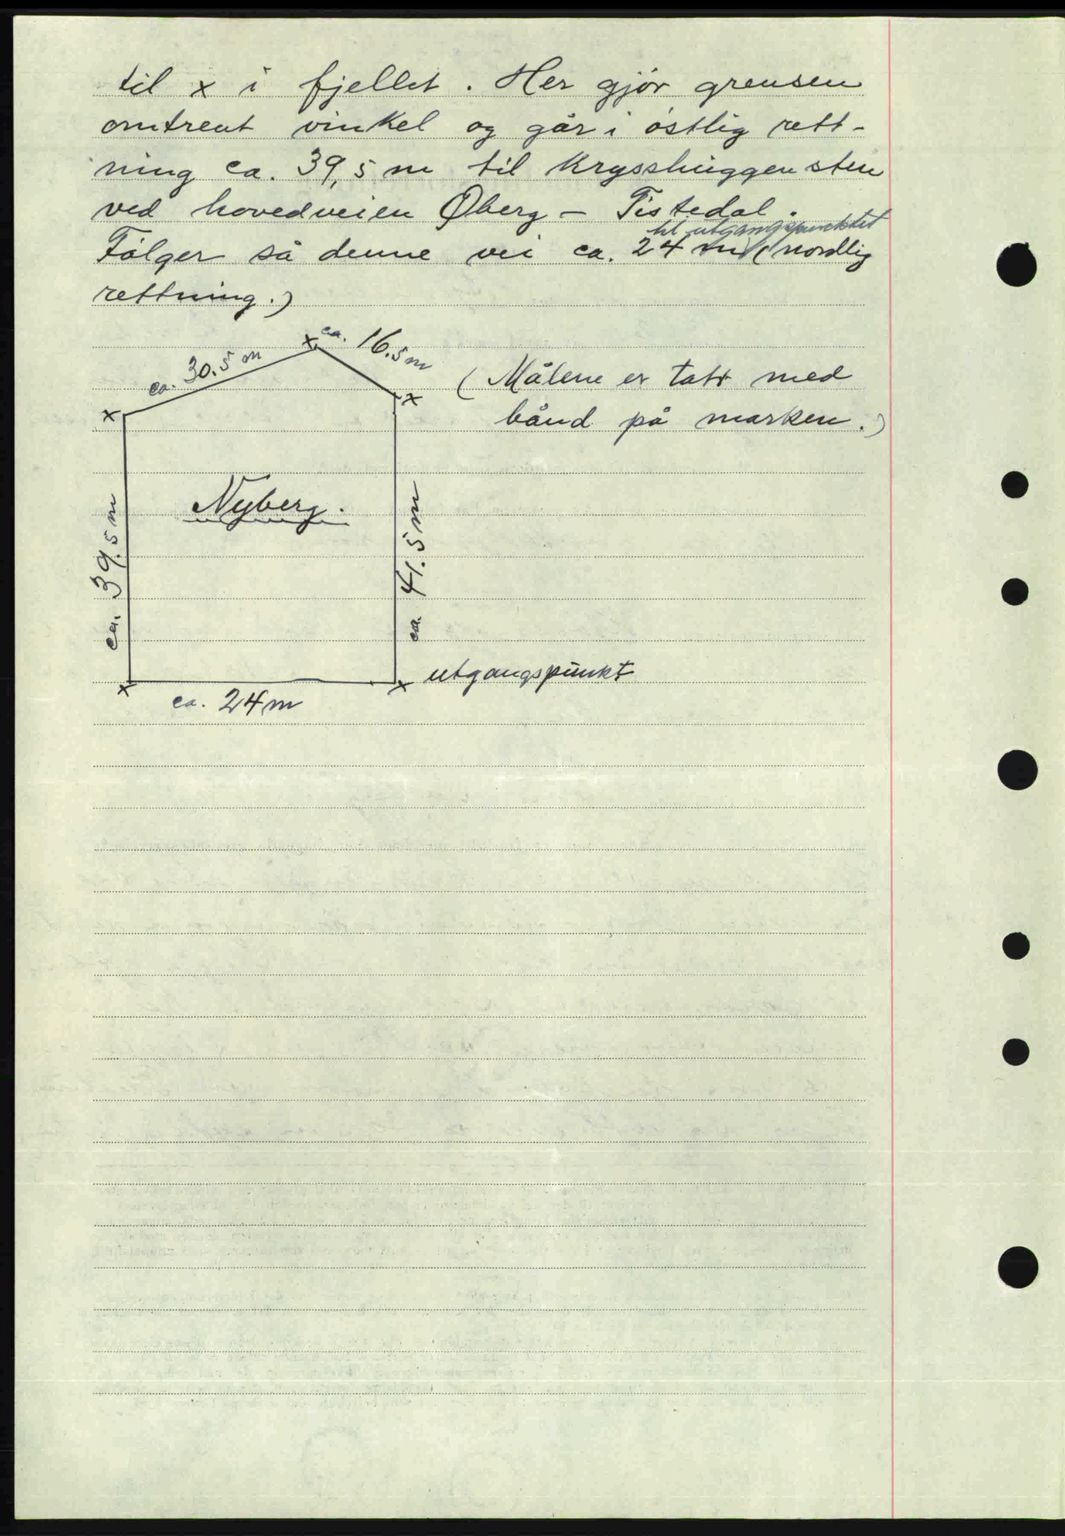 til x i fjellet. Her gjør grensen
omtrent vinkel og går i østlig rett-
ning ca. 39,5 m til krysshuggen sten
ved hovedveien Øberg - Tistedal.
til utgangspunktet
Følger så denne vei ca. 24 m (nordlig
rettning.)
ca. 30.5 m
ca. 16.5 m
(Målene er tatt med
bånd på marken.)
Nyberg.
ca. 39.5 m
ca. 41.5 m
utgangspunkt
ca. 24 m